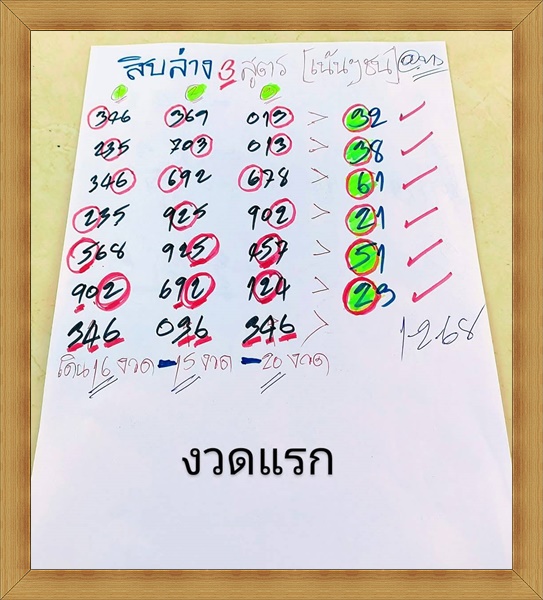 สิบล่าง 3 สูตร [เน้นๆชน]
346 369 013 > 32 ✓
235 703 013 > 38 ✓
346 692 678 > 61 ✓
235 925 902 > 21 ✓
568 925 457 > 51 ✓
902 692 124 > 23 ✓
346 036 346 >
1-2-68
เดิน 16 งวด - 15 งวด - 20 งวด
งวดแรก